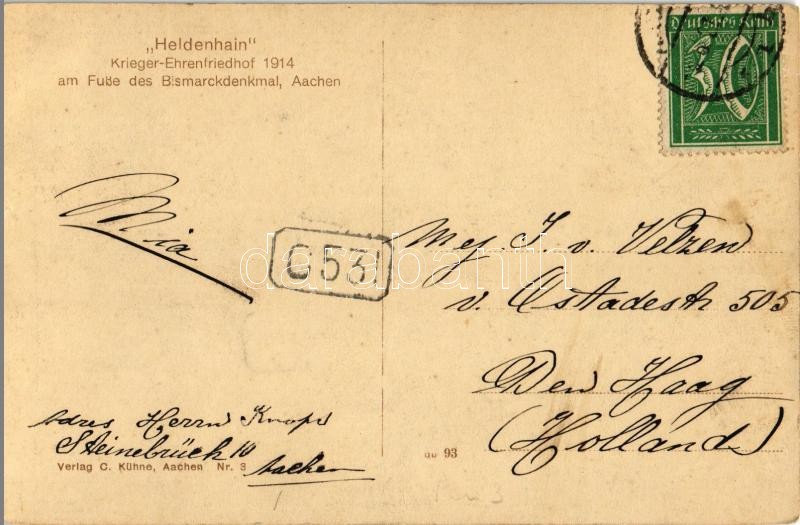 „Heldenhain"
Krieger-Ehrenfriedhof 1914
am Fuße des Bismarckdenkmal, Aachen
Deutsches Reich
30
Mia
C 53
darabanth
Mej. J. v. Velzen
v. Ostadestr 505
Den Haag
(Holland)
Adres Herrn Knops
Steinebrück 10
Aachen
Verlag C. Kühne, Aachen Nr. 3
93